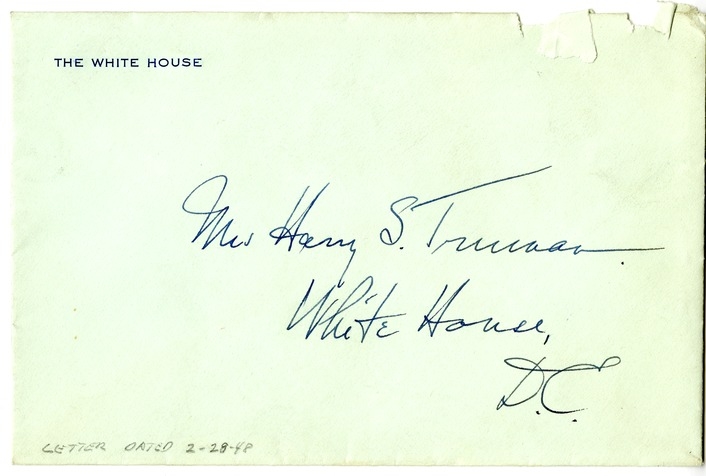 THE WHITE HOUSE
Mrs Harry S. Truman.
White House,
D.C.
LETTER DATED 2-28-48